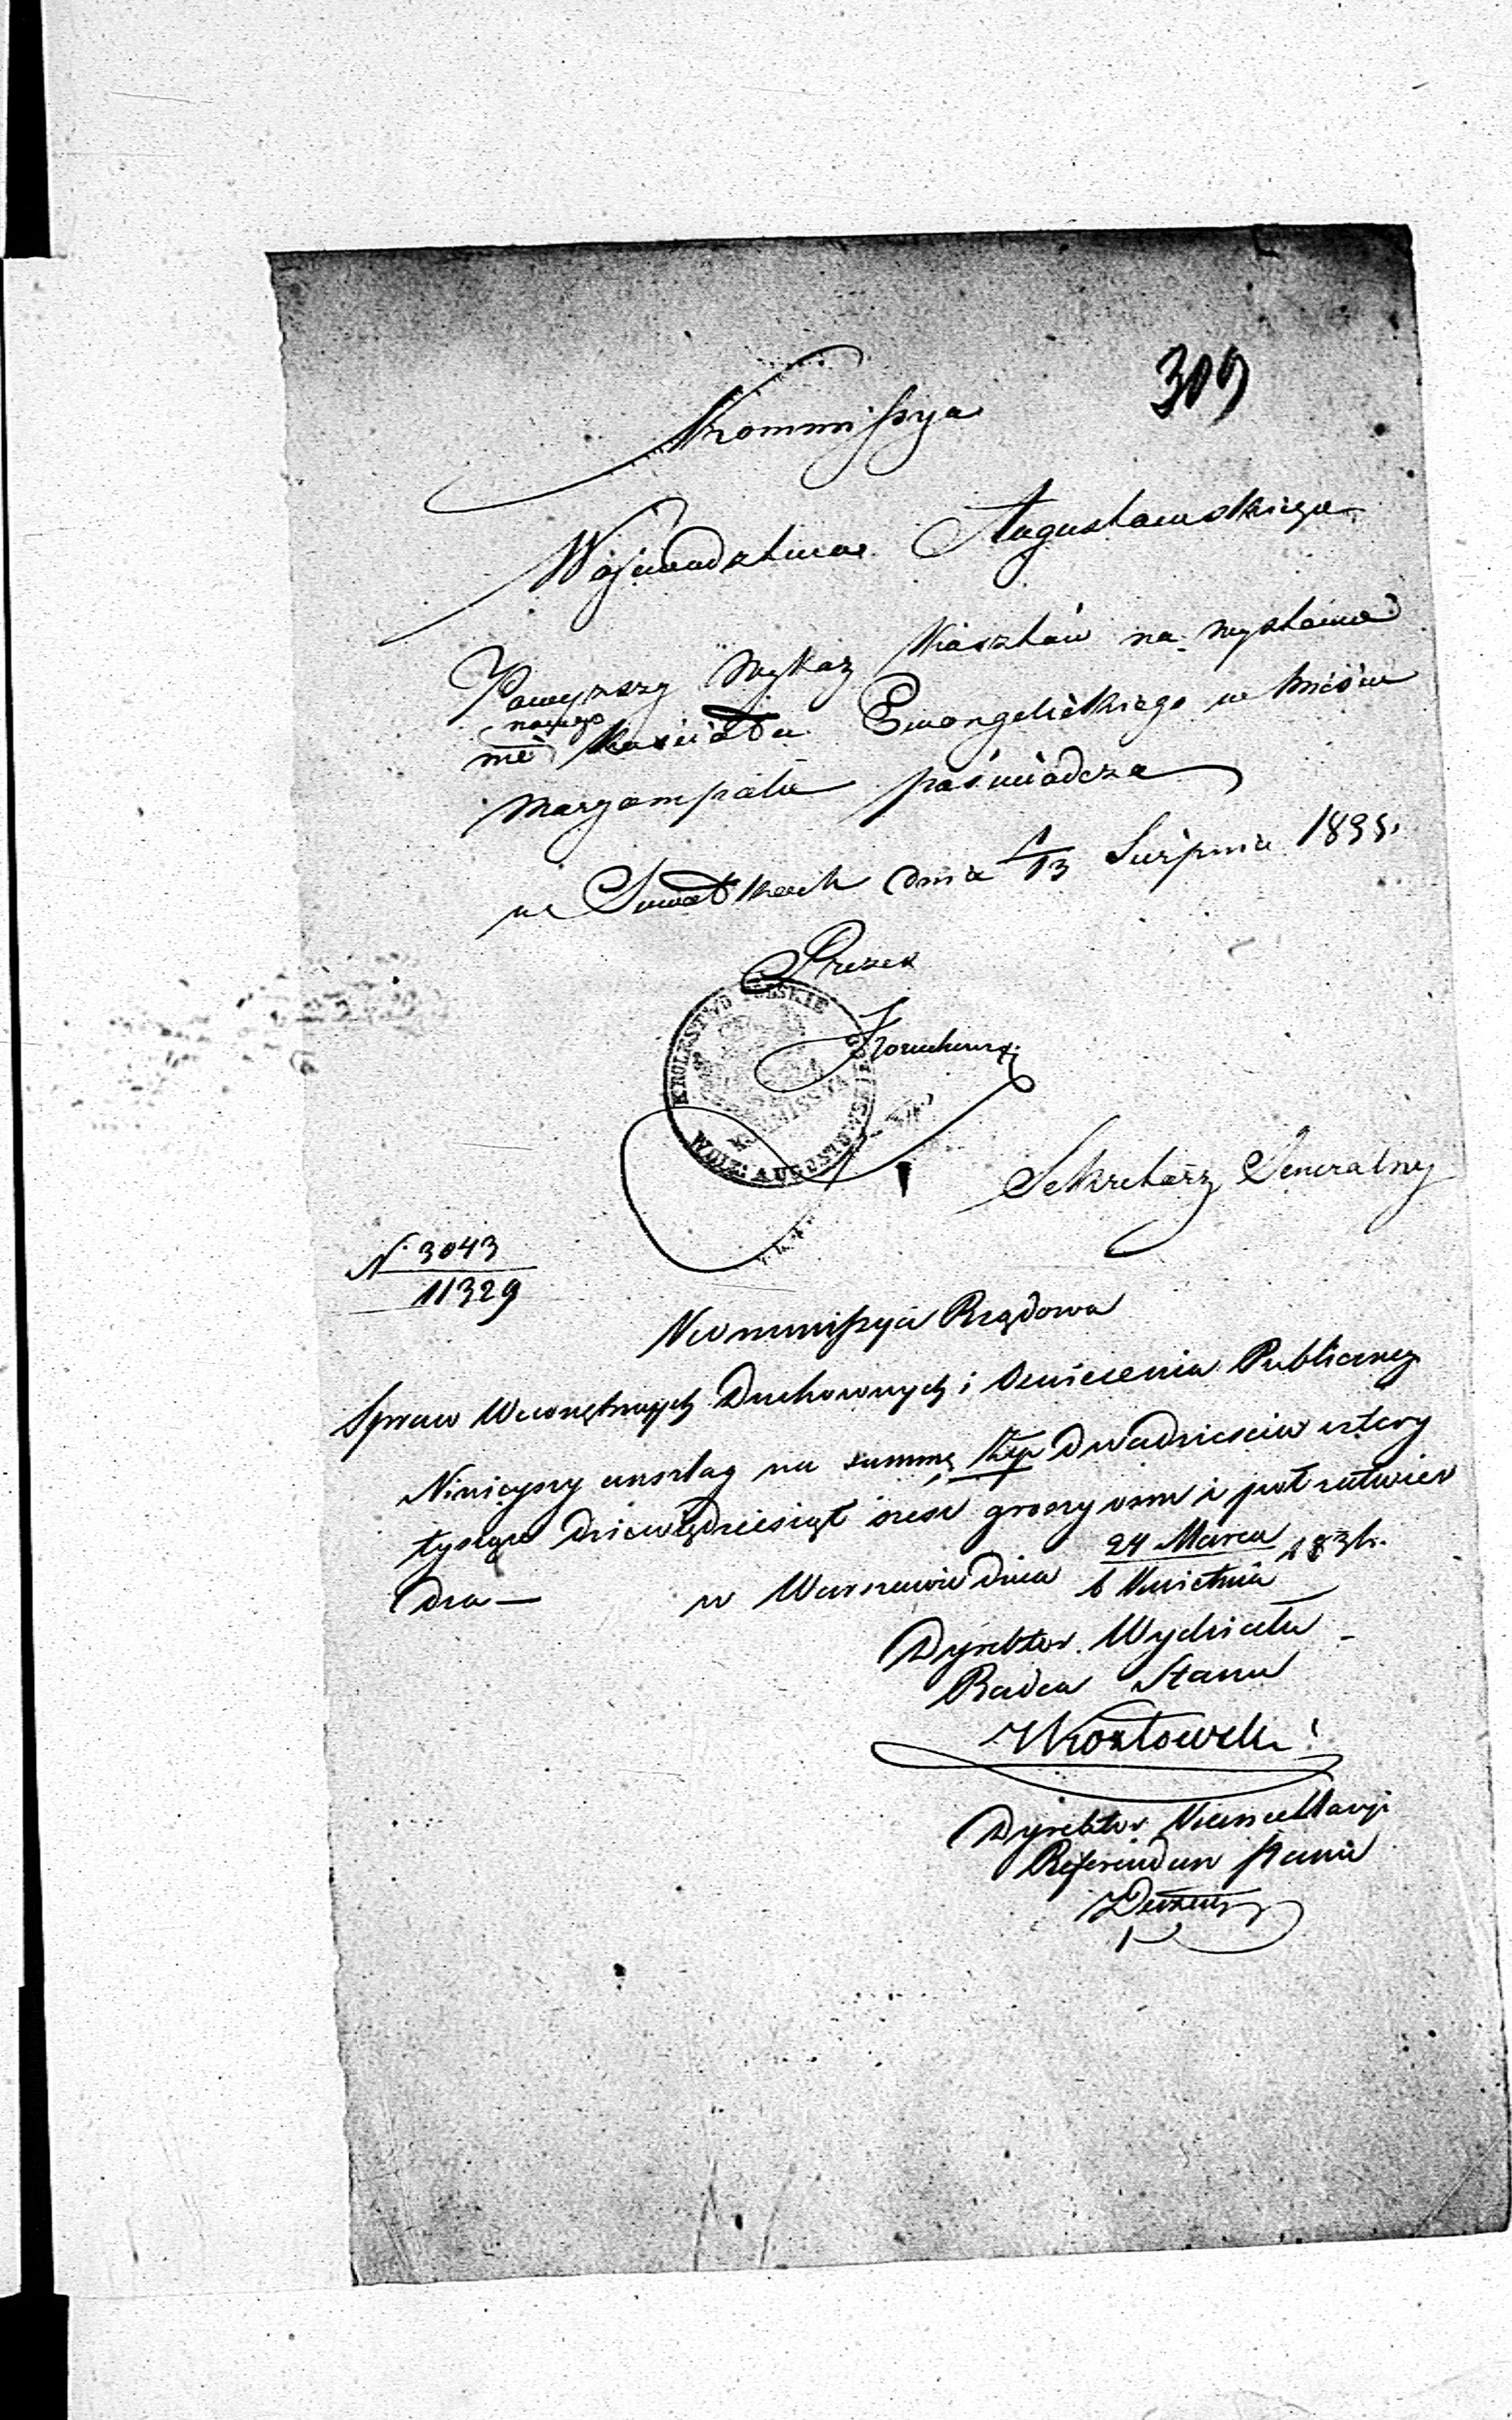 309
Kommissya
Wojewodztwa Augustowskiego
Powyższy Wykaz Kosztów na wystawie
nowego
nie Kościoła Ewangelickiego w mieście
Maryampolu poświadcza
w Suwałkach dnia 1/13 Sierpnia 1835.
Prezes
KROLESTWO POLSKIE
KOMMISSYA
WOIEW: AUGUSTOWSKIEGO
Sekretarz Generalny
N 3043
11329
Kommissya Rządowa
Spraw Wewnętrznych Duchownych i Oświecenia Publicznego
Ninieyszy anszlag na summę Złp dwadzieścia cztery
tysiące dziewięćdziesiąt sześć groszy osm i pół zatwier
dza — w Warszawie dnia 24 Marca / 6 Kwietnia 1836.
Dyrektor Wydziału
Radca Stanu
Kozłowski
Dyrektor Kancellaryi
Referendarz Stanu